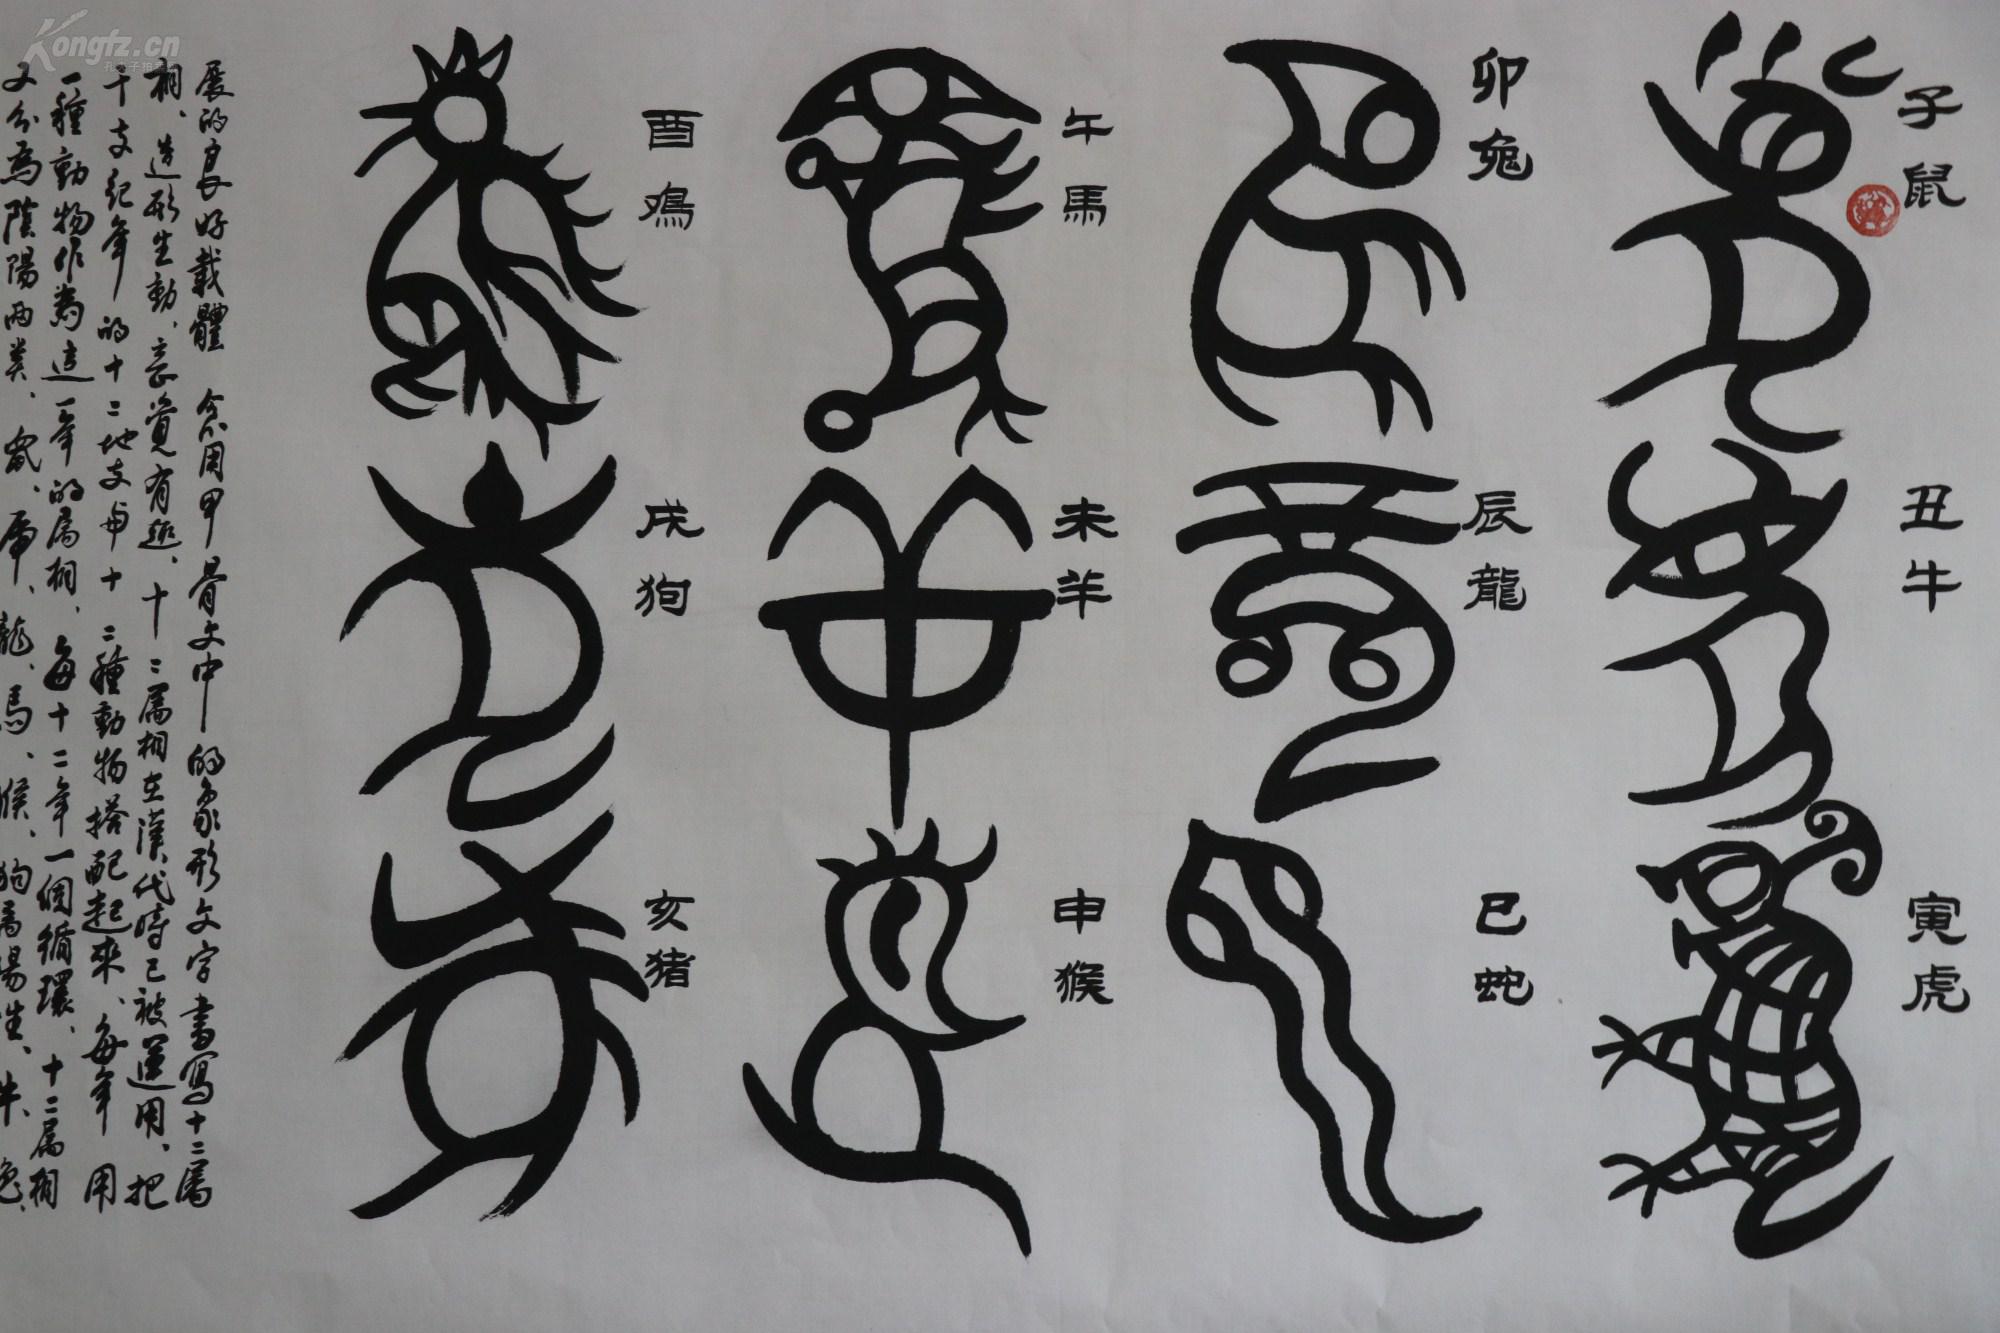 子鼠
丑牛
寅虎
卯兔
辰龍
巳蛇
午馬
未羊
申猴
酉鳮
戌狗
亥猪
展的良好載體 今用甲骨文中的象形文字書寫十二属
相、造形生動、意覺有趣、十二属相在漢代時已被運用、把
干支紀年的十二地支与十二種動物搭配起來、每年用
一種動物作為這一年的属相、每十二年一個循環、十二属相
又分為陰陽两类、鼠、虎、龍、馬、猴、狗為陽性、牛、兔、
Kongfz.cn